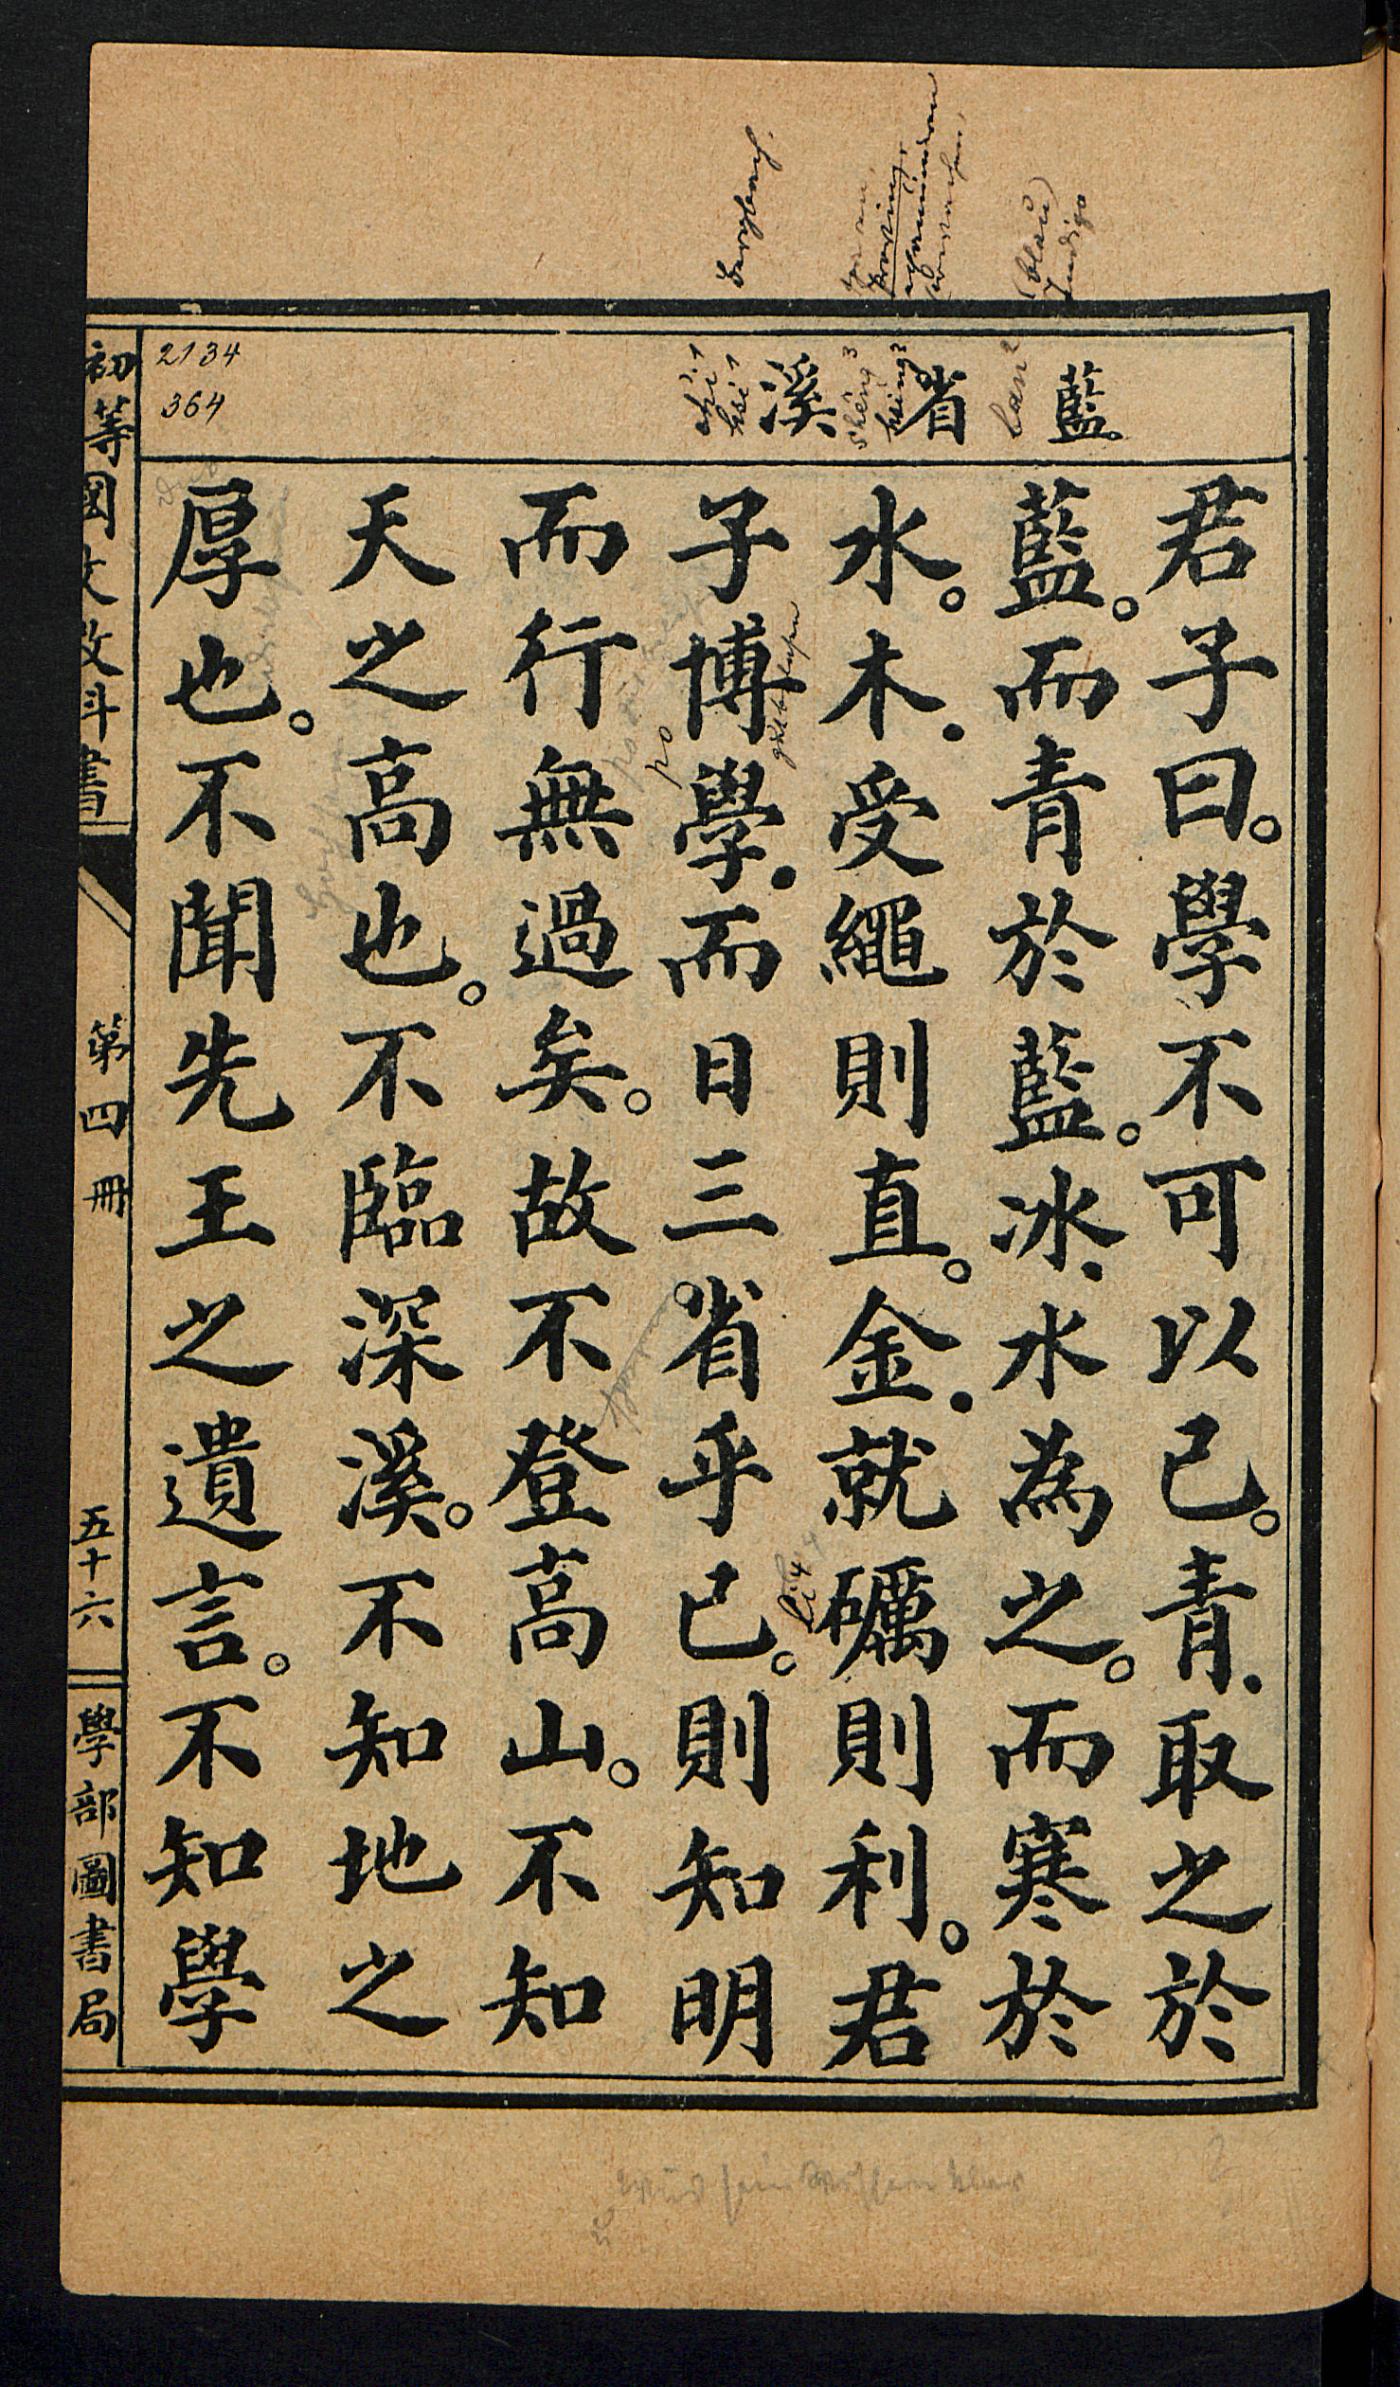 藍。
省
溪
lan²
(blau)
Indigo
shêng³
hsing³
ch'i¹
hsi¹
2134
364
君子曰。學不可以已。青．取之於
藍。而青於藍。冰．水為之。而寒於
水。木．受繩則直。金．就礪則利。君
子博學．而日三省乎已。則知明
而行無過矣。故不登高山。不知
天之高也。不臨深溪。不知地之
厚也。不聞先王之遺言。不知學
po
li⁴
初等國文教科書
第四冊
五十六
學部圖書局